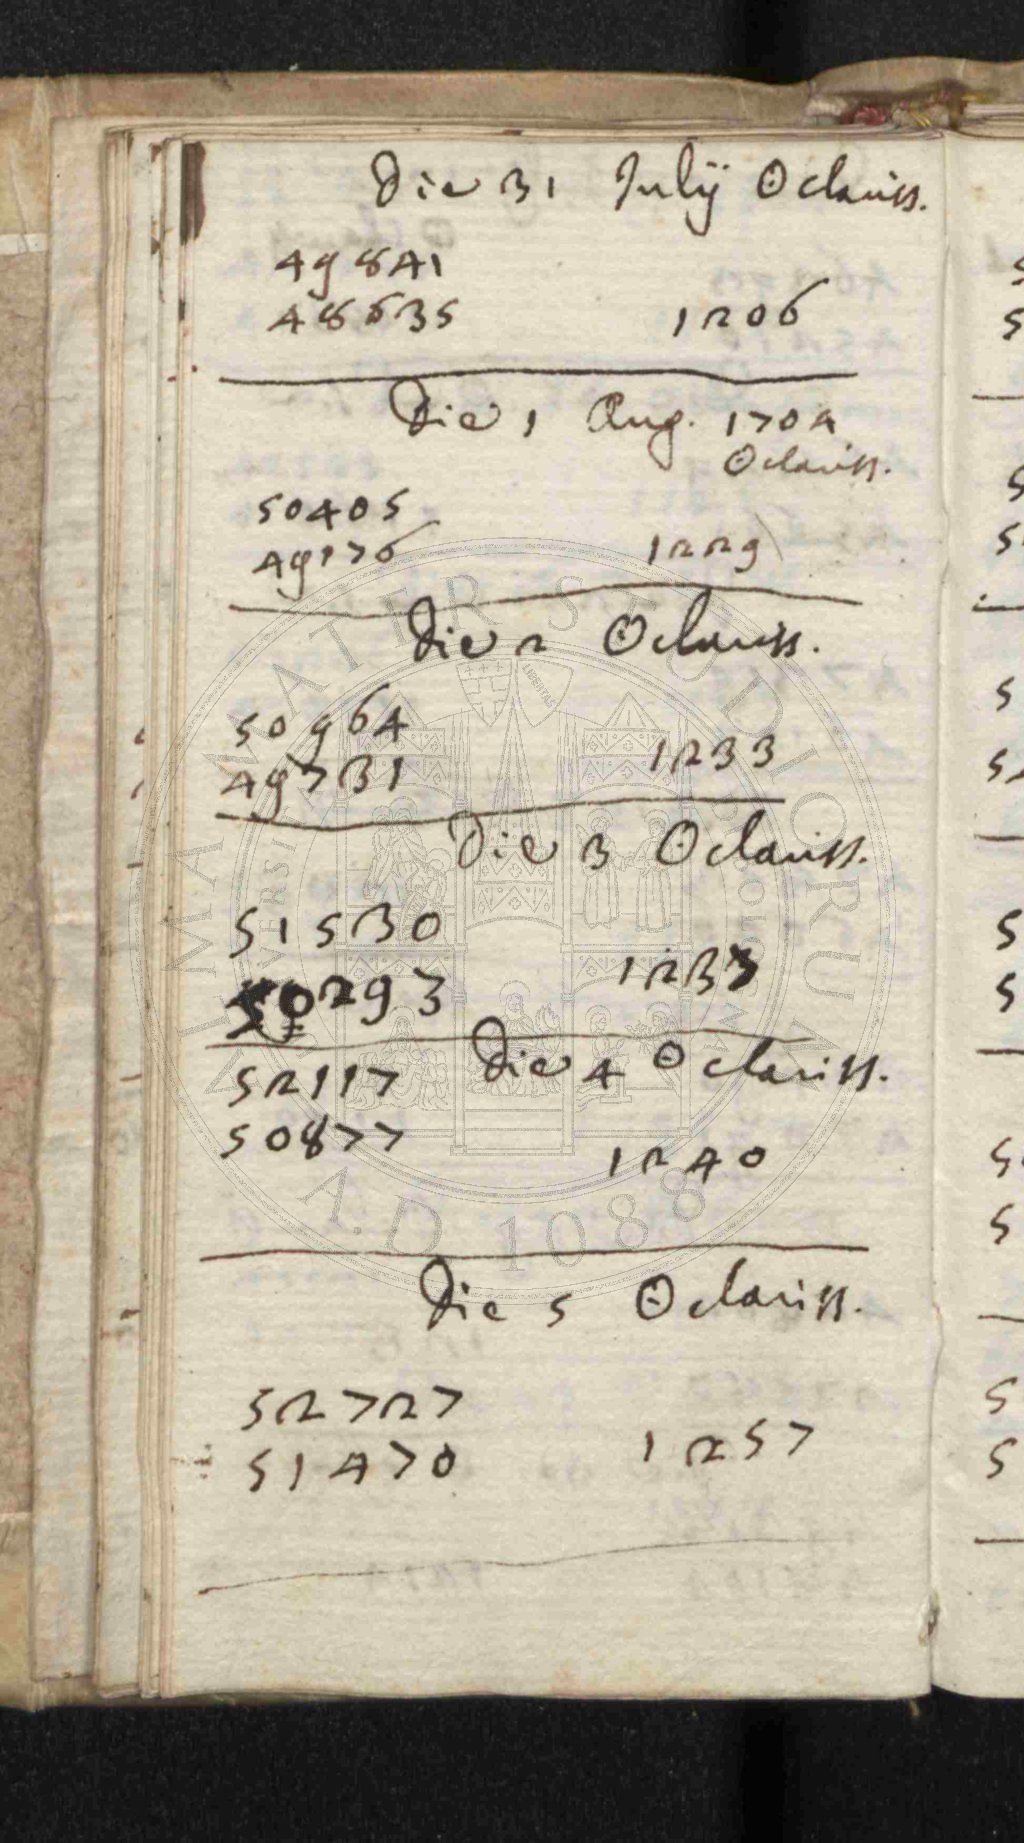 Die 31 Julÿ ☉ clariss.
49841
48635 1206
Die 1 Aug. 1704
☉ clariss.
50405
49176 1229
Die 2 ☉ clariss.
50964
49731 1233
Die 3 ☉ clariss.
51530
50293 1237
Die 4 ☉ clariss.
52117
50877 1240
Die 5 ☉ clariss.
52727
51470 1257
ALMA MATER STUDIORUM
A.D. 1088